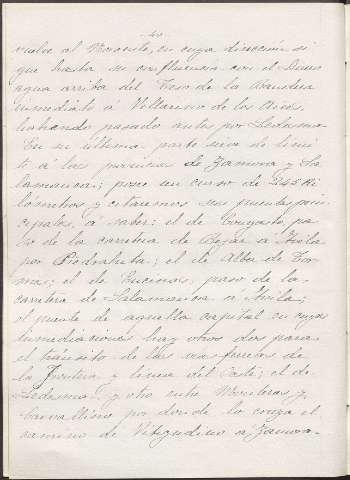 - 40 -
vuelve al Noroeste, en cuya dirección si
gue hasta su confluencia con el Duero
agua arriba del Teso de la Bandera
inmediato á Villarino de los Aires,
habiendo pasado antes por Ledesma.
En su última parte sirve de limi
te á las provincias de Zamora y Sa
lamanca; posee un curso de 245 Ki
lómetros, y citaremos sus puentes prin
cipales, á saber: el de Congosto pa
so de la carretera de Béjar á Ávila
por Piedrahita; el de Alba de Tor
mes; el de Encinas, paso de la
carretera de Salamanca á Ávila;
el puente de aquella capital en cuyas
inmediaciones hay otros dos para
el tránsito de las vías ferreas de
la Frontera y linea del Oeste; el de
Ledesma y otro entre Moraleras y
Carvallino por donde lo cruza el
camino de Vitigudino á Zamora.